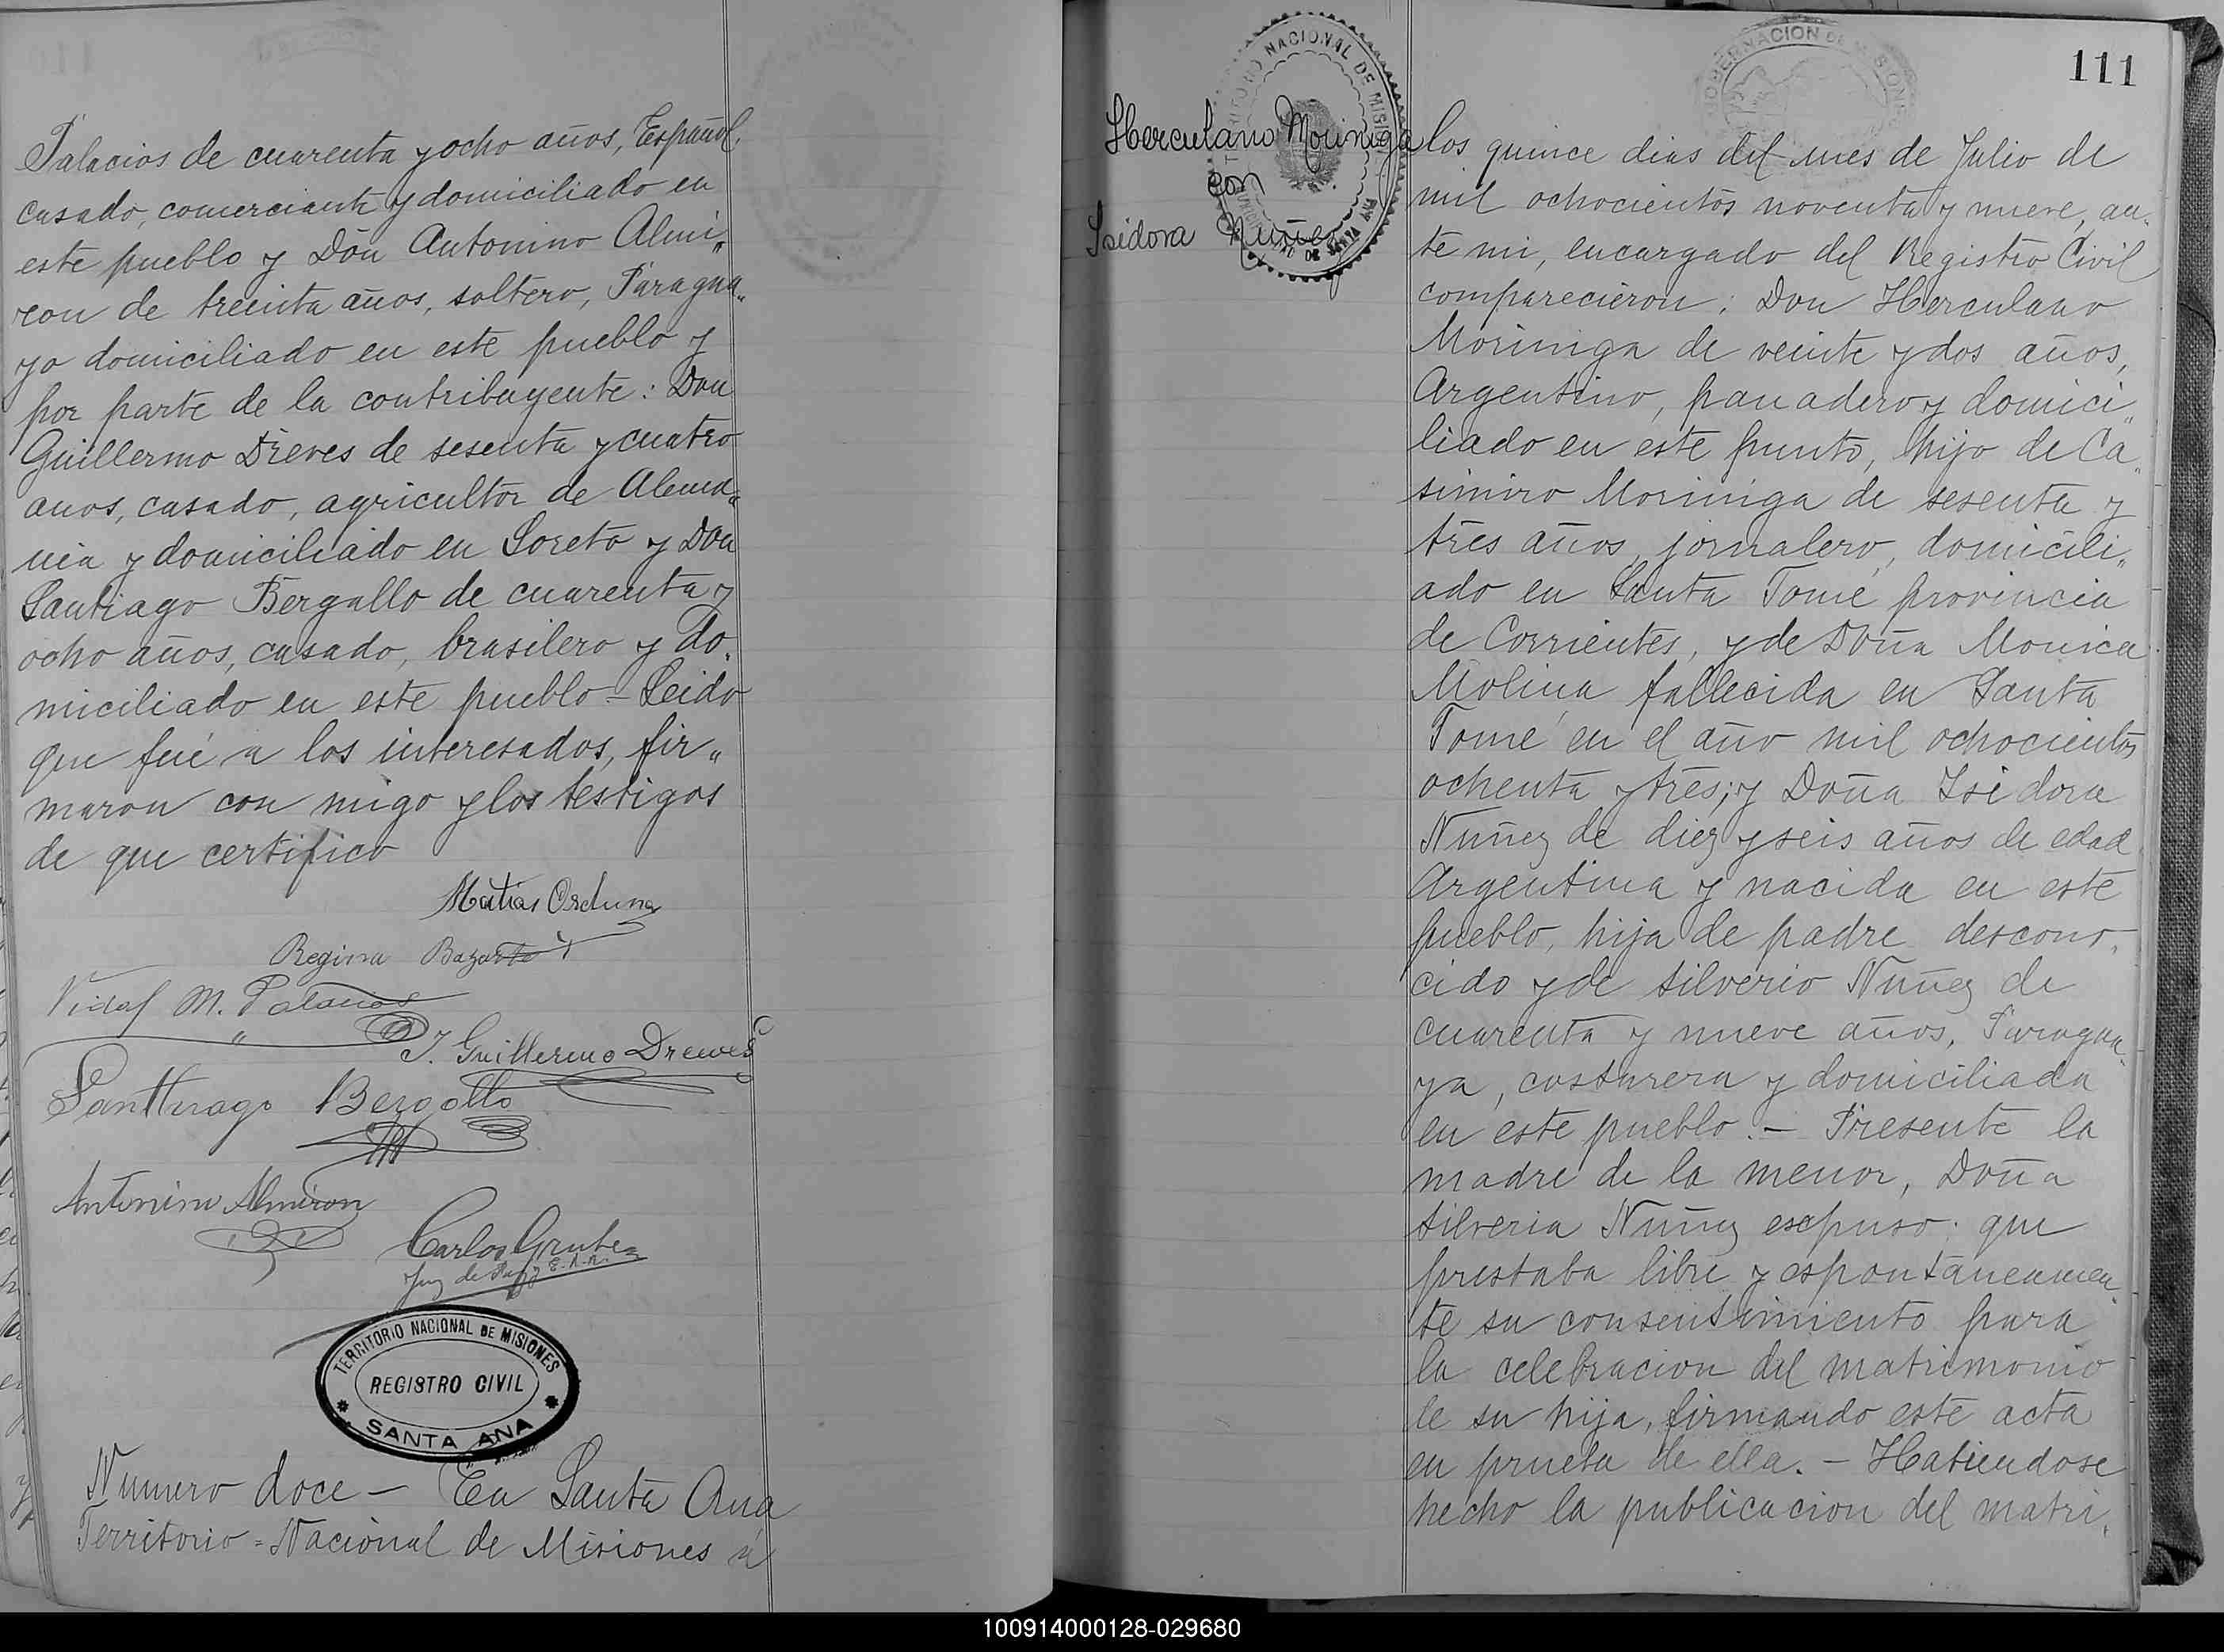 Palacios de cuarenta y ocho años, Español,
casado, comerciante y domiciliado en
este pueblo y Don Antonino Almi„
ron de treinta años, soltero, Paragua„
yo domiciliado en este pueblo y
por parte de la contribuyente: Don
Guillermo Dreves de sesenta y cuatro
anos, casado, agricultor de Alema„
nia y domiciliado en Loreto y Don
Santiago Bergallo de cuarenta y
ocho años, casado, brasilero y do„
miciliado en este pueblo - Leido
que fué a los interesados, fir„
maron con migo y los testigos
de que certifico
Matias Orduna
Regina
Vidal M. Palacios
J. Guillermo Drewes
Santhiago Bergallo
Antonino Almiron
Carlos
Juez de Paz E. A. A.
TERRITORIO NACIONAL DE MISIONES
REGISTRO CIVIL
SANTA ANA
Numero doce - En Santa Ana
Territorio = Nacional de Misiones á
111
GOBERNACION DE MISIONES
TERRITORIO NACIONAL DE MISIONES
Herculano Moriniga
con
Isidora Nuñez
los quince dias del mes de Julio de
mil ochocientos noventa y nueve, an„
te mi, encargado del Registro Civil
comparecieron: Don Herculano
Moriniga de veinte y dos años,
Argentino, panadero y domici„
liado en este punto, hijo de Ca„
simiro Moriniga de sesenta y
tres años, jornalero, domicili„
ado en Santa Tomé provincia
de Corrientes, y de Doña Monica
Molina fallecida en Santa
Tomé en el año mil ochocientos
ochenta y tres; y Doña Isidora
Nuñez de diez y seis años de edad
Argentina y nacida en este
pueblo, hija de padre descono„
cido y de Silverio Nuñez de
cuarenta y nueve años, Paragua„
ya, costurera y domiciliada
en este pueblo. - Presente la
madre de la menor, Doña
Silveria Nuñez escpuso: que
prestaba libre y espontaneamen„
te su consentimiento para
la celebracion del matrimonio
de su hija, firmando este acta
en prueba de ella. - Habiendose
hecho la publicacion del matri„
100914000128-029680